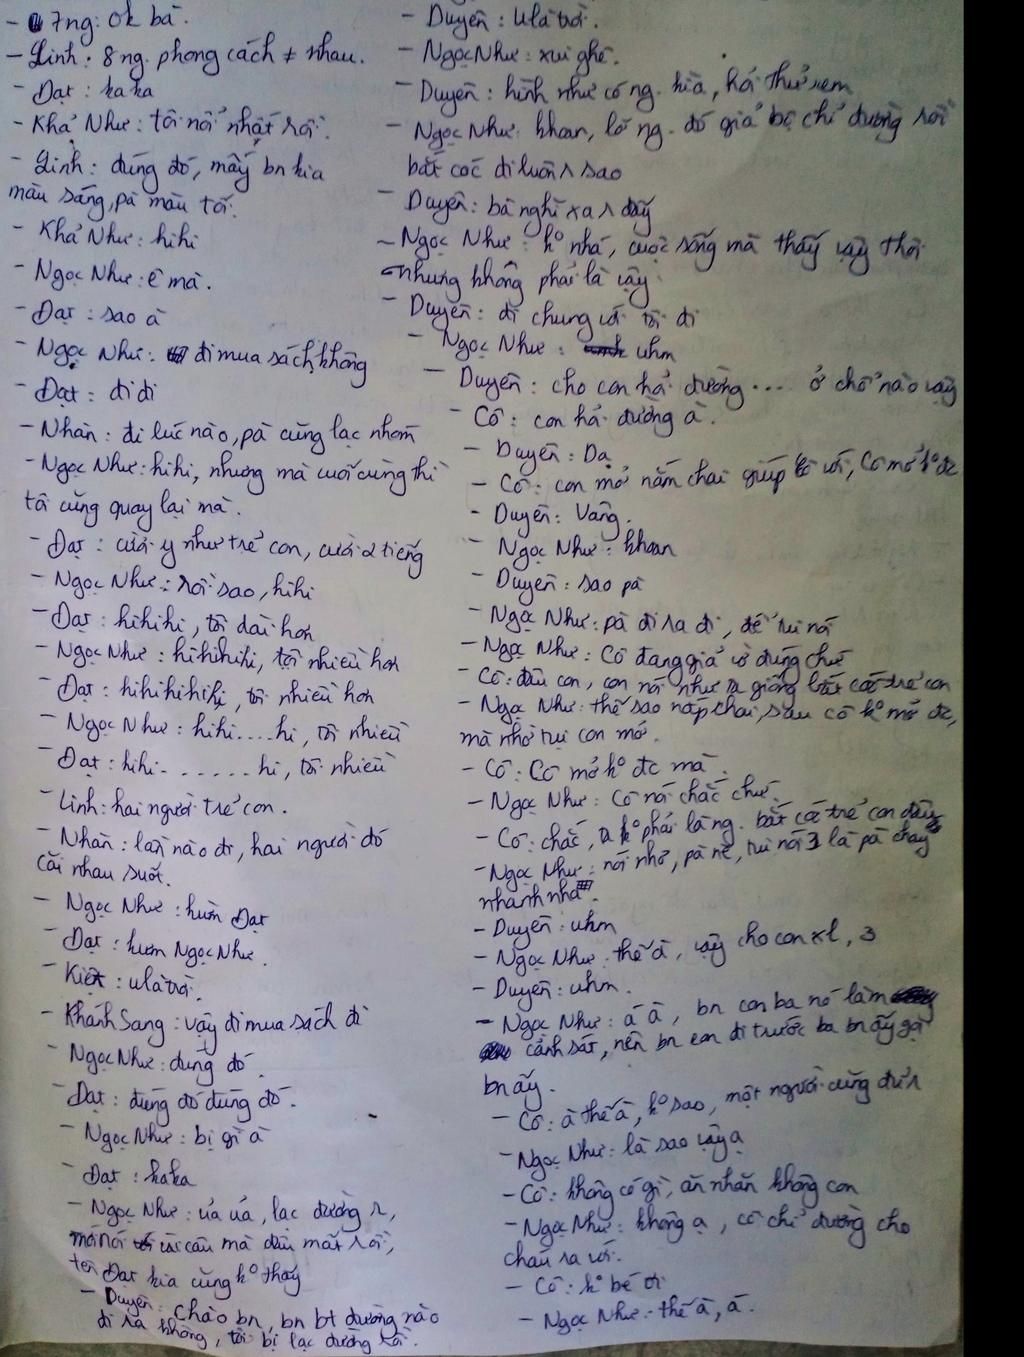 - 7ng: ok bà.
- Linh: 8 ng. phong cách ≠ nhau.
- Đạt: kaka
- Khả Như: tôi nổi nhất rồi.
- Linh: đúng đó, mấy bn kia
màu sáng, pà màu tối.
- Khả Như: hihi
- Ngọc Như: ê mà.
- Đạt: sao à
- Ngọc Như: đi mua sách không
- Đạt: đi đi
- Nhàn: đi lúc nào, pà cũng lạc nhóm
- Ngọc Như: hihi, nhưng mà cuối cùng thì
tôi cũng quay lại mà.
- Đạt: cười y như trẻ con, cười 2 tiếng
- Ngọc Như: rồi sao, hihi
- Đạt: hihihi, tôi dài hơn
- Ngọc Như: hihihihi, tôi nhiều hơn
- Đạt: hihihihihi, tôi nhiều hơn
- Ngọc Như: hihi....hi, tôi nhiều
- Đạt: hihi.......hi, tôi nhiều
- Linh: hai người trẻ con.
- Nhàn: lần nào đi, hai người đó
cãi nhau suốt.
- Ngọc Như: hứm Đạt
- Đạt: hứm Ngọc Như.
- Kiệt: ulà trời.
- Khánh Sang: vậy đi mua sách đi
- Ngọc Như: đúng đó.
- Đạt: đúng đó đúng đó.
- Ngọc Như: bị gì à
- Đạt: kaka
- Ngọc Như: ủa uả, lạc đường r,
mới nói vài câu mà đâu mất rồi,
tên Đạt kia cũng ko thấy
- Duyên: chào bn, bn bt đường nào
đi ra không, tôi bị lạc đường rồi.
- Duyên: ulà trời.
- Ngọc Như: xui ghê.
- Duyên: hình như có ng. kìa, hỏi thử xem
- Ngọc Như: khoan, lỡ ng. đó giả bộ chỉ đường rồi
bắt cóc đi luôn r sao
- Duyên: bà nghĩ xa r đấy
- Ngọc Như: ko nhá, cuộc sống mà thấy vậy thôi
nhưng không phải là vậy
- Duyên: đi chung với tôi đi
- Ngọc Như: uhm
- Duyên: cho con hỏi đường.... ở chỗ nào vậy
- Cô: con hỏi đường à.
- Duyên: Dạ
- Cô: con mở nắm chai giúp cô với, cô mở ko đc
- Duyên: Vâng.
- Ngọc Như: khoan
- Duyên: sao pà
- Ngọc Như: pà đi ra đi, để tui nói
- Ngọc Như: Cô đang giả vờ đúng chứ
- Cô: đâu con, con nói như ta giống bắt cóc trẻ con
- Ngọc Như: thế sao nắp chai, sau cô ko mở đc,
mà nhờ tụi con mở.
- Cô: Cô mở ko đc mà.
- Ngọc Như: Cô nói chắc chứ.
- Cô: chắc, ta ko phải là ng. bắt cóc trẻ con đâu
- Ngọc Như: nói nhỏ, pà nè, tui nói 3 là pà chạy
nhanh nha.
- Duyên: uhm
- Ngọc Như: thế à, vậy cho con xl, 3
- Duyên: uhm.
- Ngọc Như: á à, bn con ba nó làm
cảnh sát, nên bn con đi trước ba bn ấy gọi
bn ấy.
- Cô: à thế à, ko sao, một người cũng đủ r
- Ngọc Như: là sao vậy ạ
- Cô: không có gì, ăn nhãn không con
- Ngọc Như: không ạ, cô chỉ đường cho
cháu ra với.
- Cô: ko bé ơi
- Ngọc Như: thế à, á.